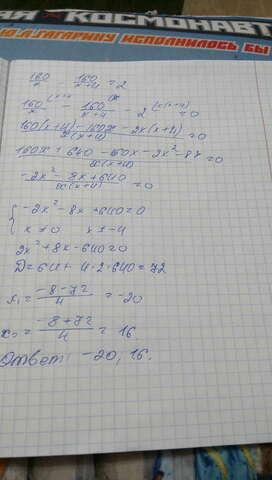 АЯ КОСМОНАВТ
Ю.А. ГАГАРИНУ ИСПОЛНИЛОСЬ БЫ
160/x - 160/(x+4) = 2
160/x (x+4) - 160/(x+4) (x - 2 (x(x+4) = 0
160(x+4) - 160x - 2x(x+4) / x(x+4) = 0
160x + 640 - 160x - 2x² - 8x / x(x+4) = 0
-2x² - 8x + 640 / x(x+4) = 0
{ -2x² - 8x + 640 = 0
x ≠ 0 x ≠ -4
2x² + 8x - 640 = 0
D = 64 + 4·2·640 = 72
x₁ = (-8-72)/4 = -20
x₂ = (-8+72)/4 = 16
Ответ: -20, 16.